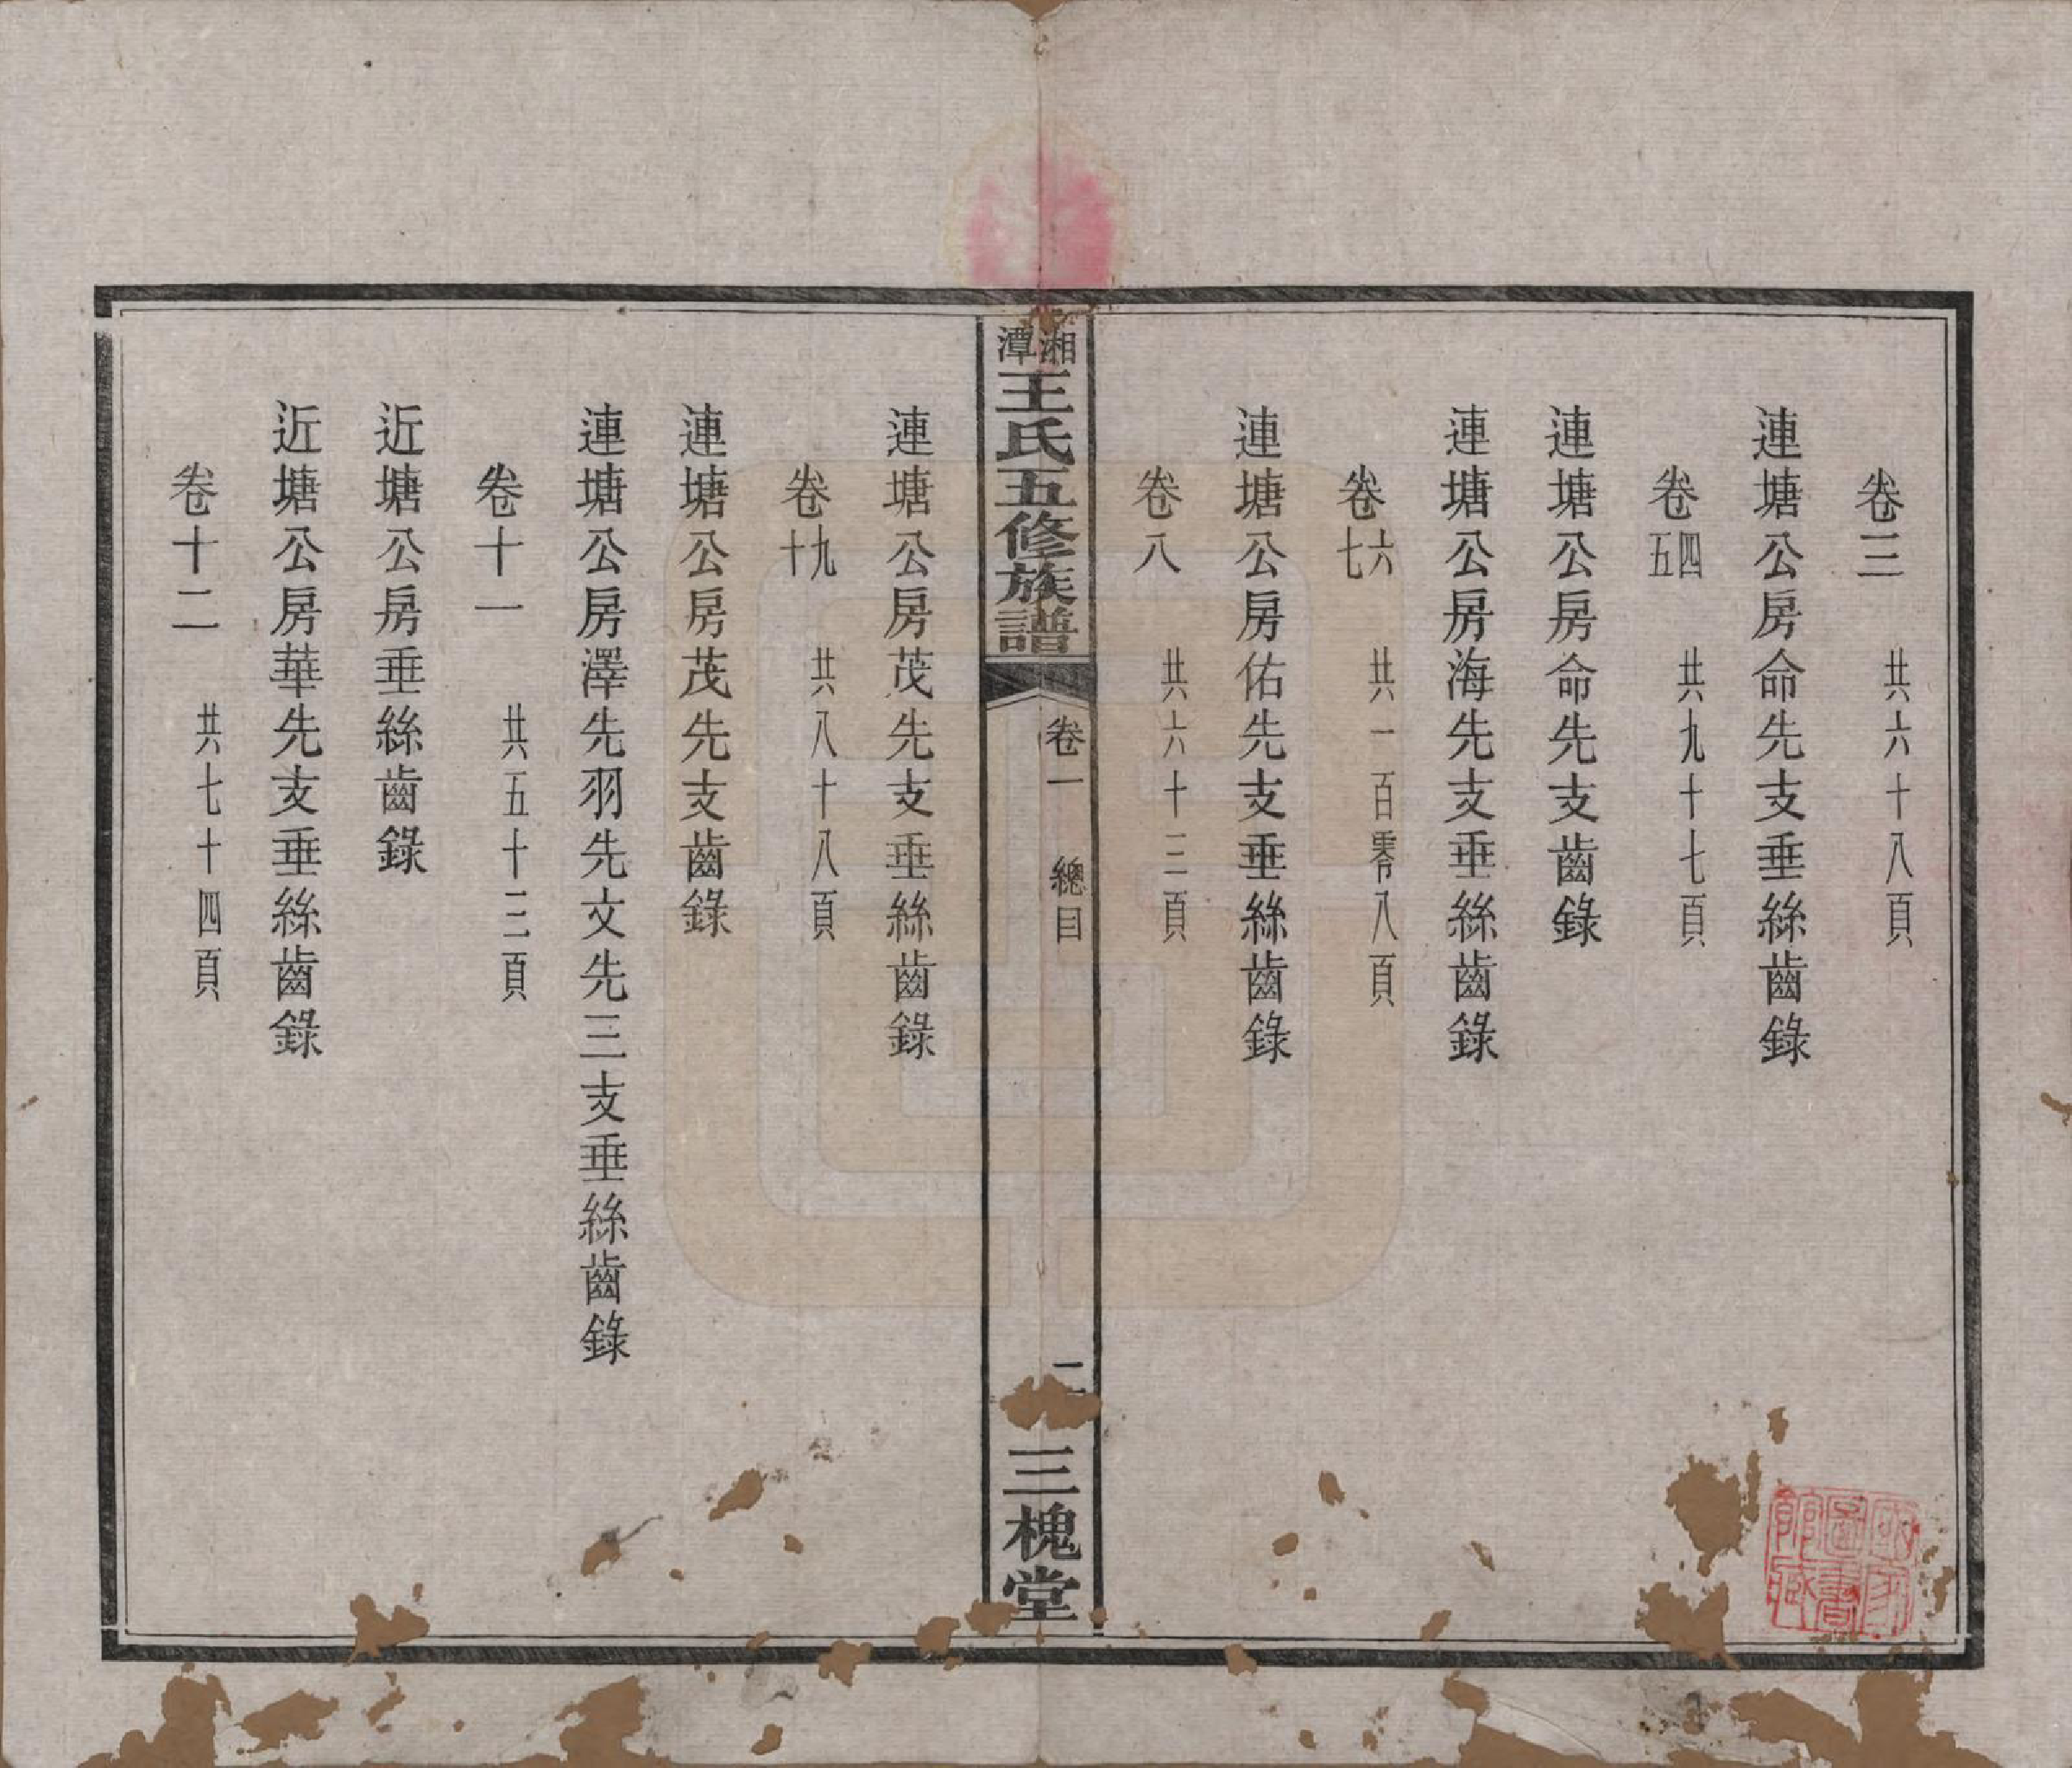 卷三 共六十八頁
連塘公房命先支垂絲齒錄
卷四五 共九十七頁
連塘公房命先支齒錄
連塘公房海先支垂絲齒錄
卷六七 共一百零八頁
連塘公房佑先支垂絲齒錄
卷八 共六十三頁
湘潭王氏五修族譜 卷一 總目 二 三槐堂
連塘公房茂先支垂絲齒錄
卷九十 共八十八頁
連塘公房茂先支齒錄
連塘公房澤先羽先文先三支垂絲齒錄
卷十一 共五十三頁
近塘公房垂絲齒錄
近塘公房華先支垂絲齒錄
卷十二 共七十四頁
國家圖書館藏